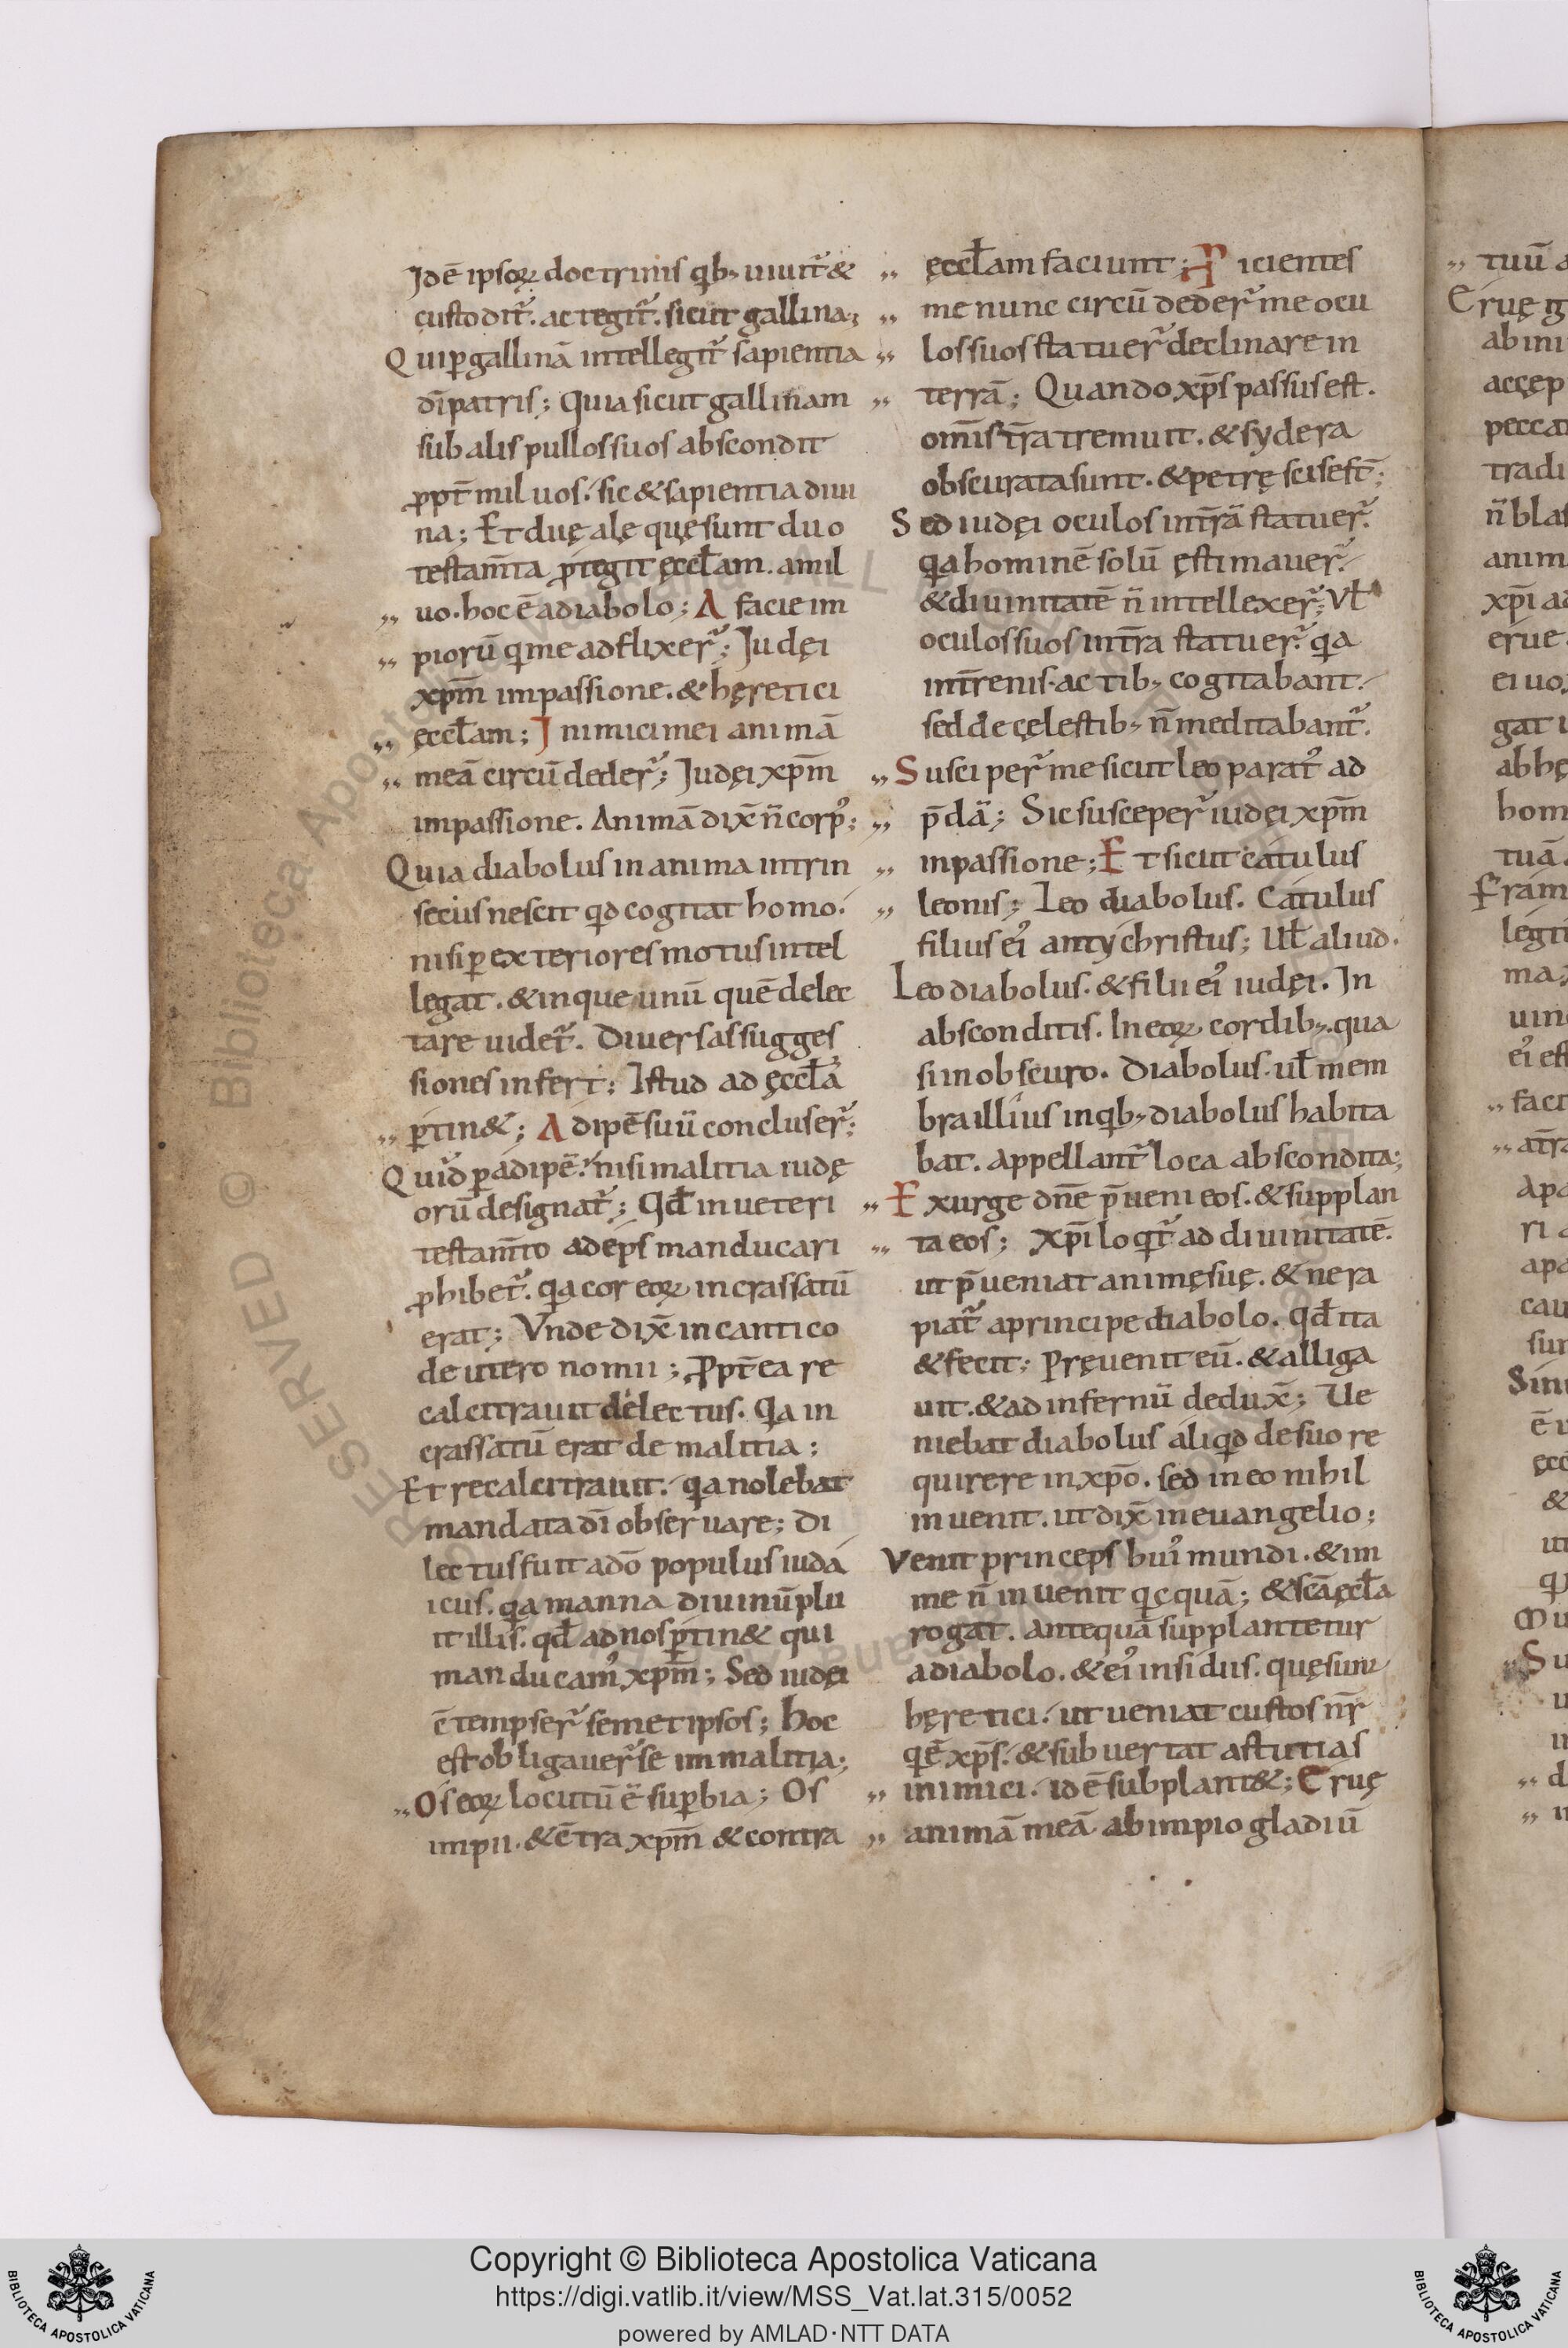 Idē ipsoꝝ doctrinis qb; uiuit᷑ &
custodit᷑. ac tegit᷑. sicut gallina;
Qui ꝑ gallinā intellegit᷑ sapientia
dī patris; Quia sicut gallinam
sub alis pullos suos abscondit
ꝓpt̄ miluos. sic & sapientia diui
na; Et duę alę quę sunt duo
testam̄ta ꝓtegit ęccłam. a mil
„ uo. hoc ē a diabolo; A facie im
„ piorū q me adflixer᷑; Iudęi
xp̄m in passione. & hęretici
„ ęccłam; Inimici mei animā
„ meā circūdeder᷑; Iudęi xp̄m
in passione. Animā dix̄ n̄ corp᷒;
Quia diabolus in anima intrin
secus nescit qd cogitat homo.
nisi ꝑ exteriores motus intel
legat. & inque unū quē delec
tare uidet᷑. Diuersas sugges
siones infert; Istud ad ęccłā
„ ꝑtin&; Adipē suū concluser᷑;
Quid ꝑ adipē. nisi malitia iudę
orū designat᷑; Qđ in ueteri
testam̄to adeps manducari
ꝓhibet᷑. qa cor eoꝝ incrassatū
erat; Vnde dix̄ in cantico
deuteronomii; Ꝓpt̄ea re
calcitrauit delectus. Qa in
crassatū erat de malitia;
Et recalcitrauit. qa nolebat
mandata dī obseruare; Di
lectus fuit a dō populus iuda
icus. qa manna diuinū plu
it illis. qđ ad nos ꝑtin& qui
manducam᷒ xp̄m; Sed iudęi
c̄tempser᷑ semetipsos; hoc
est obligauer᷑ se in malitia;
„ Os eoꝝ locutū ē suꝑbia; Os
impii. & c̄tra xp̄m & contra
„ ęccłam faciunt; Ꝓicientes
„ me nunc circūdeder᷑ me ocu
„ los suos statuer᷑ declinare in
„ terrā; Quando xp̄s passus est.
om̄is t̄ra tremuit. & sydera
obscurata sunt. & petrę scisę st̄;
Sed iudęi oculos in t̄rā statuer᷑.
qa hominē solū ęstimauer᷑.
& diuinitatē n̄ intellexer᷑; Vł
oculos suos in t̄ra statuer᷑. qa
in t̄renis. ac tib; cogitabant.
sed de cęlestib; n̄ meditabant᷑.
„ Susciper᷑ me sicut leo parat᷒ ad
„ p̄dā; Sic susceper᷑ iudęi xp̄m
„ in passione; Et sicut catulus
„ leonis; Leo diabolus. Catulus
filius ei᷒ antychristus; Uł aliud.
Leo diabolus. & filii ei᷒ iudęi. In
absconditis. In eoꝝ cordib;. qua
si in obscuro. Diabolus. uł mem
bra illius in qb; diabolus habita
bat. appellant᷑ loca abscondita;
„ Exurge dn̄e p̄ueni eos. & supplan
„ ta eos; Xp̄i loqt᷑ ad diuinitatē.
ut p̄ueniat animę suę. & ne ra
piat᷑ a principe diabolo. qđ ita
& fecit; Pręuenit eū. & alliga
uit. & ad infernū dedux̄; Ue
niebat diabolus aliqd de suo re
quirere in xp̄o. sed in eo nihil
inuenit. ut dix̄ in euangelio;
Venit princeps hui᷒ mundi. & im
me n̄ inuenit qcquā; & sc̄a ęcła
rogat. antequā supplantetur
a diabolo. & ei᷒ insidiis. quę sunt
hęretici. ut ueniat custos nr̄
qē xp̄s. & subuertat astutias
„ inimici. id ē subplant&; Eruę
„ animā meā ab impio gladiū
Copyright © Biblioteca Apostolica Vaticana
https://digi.vatlib.it/view/MSS_Vat.lat.315/0052
powered by AMLAD·NTT DATA